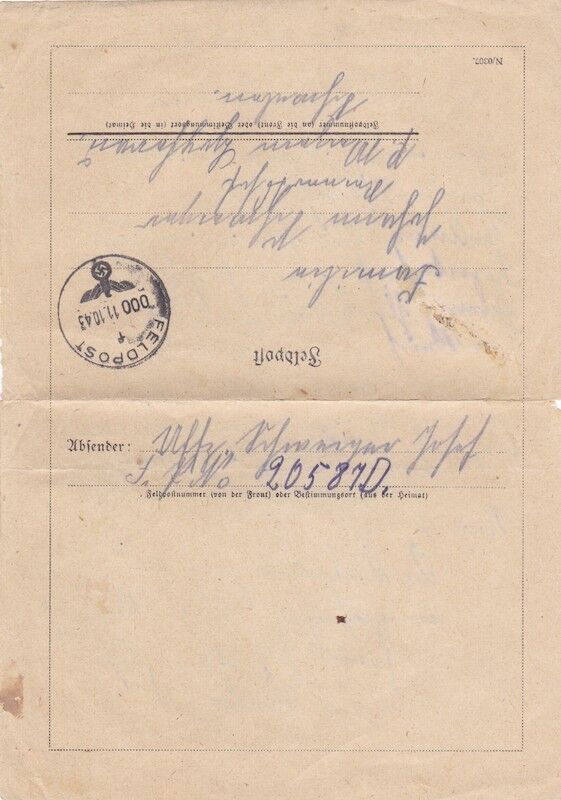 Feldpost
FELDPOST
f
000 11.10.43
Familie
Johann Schweiger
Feldpostnummer (an die Front) oder Bestimmungsort (in die Heimat)
Schwaben.
N/0307.
Absender: Uffz. Schweiger Josef
F.P.No 20587D.
Feldpostnummer (von der Front) oder Bestimmungsort (aus der Heimat)